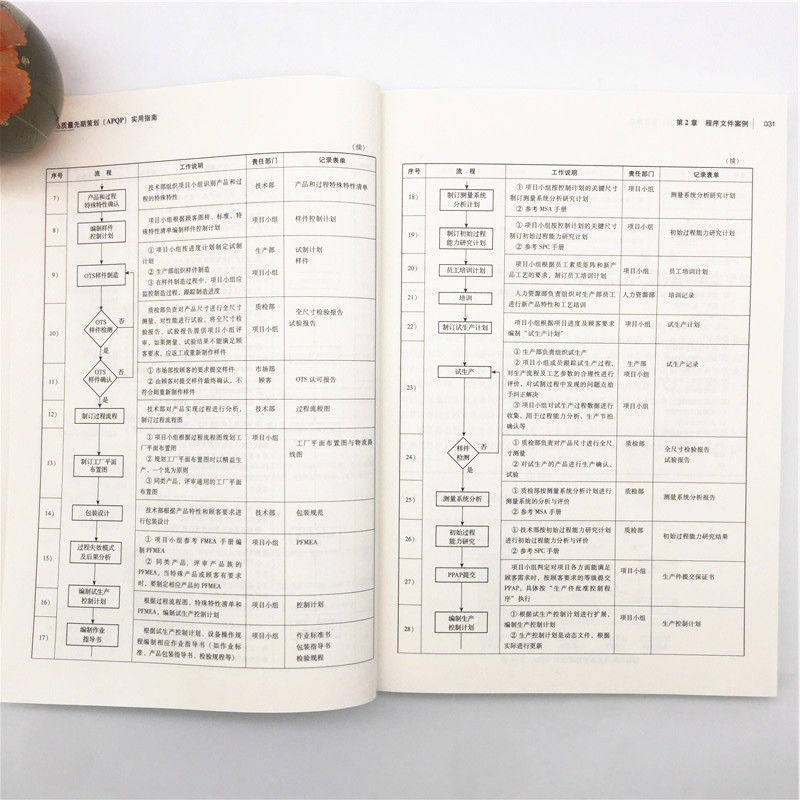 质量先期策划（APQP）实用指南
（续）
序号 流 程 工作说明 责任部门 记录表单
7） 产品和过程特殊特性确认 技术部组织项目小组识别产品和过程的特殊特性 技术部 产品和过程特殊特性清单
8） 编制样件控制计划 项目小组根据顾客图样、标准、特殊特性清单编制样件控制计划 项目小组 样件控制计划
9） OTS样件制造 ① 项目小组按进度计划制定试制计划
② 生产部组织样件制造
③ 在样件制造过程中，项目小组应监控制造过程，跟踪制造进度
生产部
项目小组
试制计划
样件
10） OTS样件检测 否 是 质检部负责对产品尺寸进行全尺寸测量、对性能进行试验，将全尺寸检验报告、试验报告提供项目小组评审，如果测量、试验结果不能满足顾客要求，应返工或重新制作样件
质检部
项目小组
全尺寸检验报告
试验报告
11） OTS样件确认 否 是 ① 市场部按顾客的要求提交样件
② 由顾客对提交样件最终确认，不符合则重新制作样件
市场部
顾客
OTS 认可报告
12） 制订过程流程 技术部对产品实现过程进行分析，制订过程流程图 技术部 过程流程图
13） 制订工厂平面布置图 ① 项目小组根据过程流程图规划工厂平面布置图
② 规划工厂平面布置图时以精益生产、一个流为原则
③ 同类产品，评审通用的工厂平面布置图
项目小组 工厂平面布置图与物流路线图
14） 包装设计 技术部根据产品特性和顾客要求进行包装设计 技术部 包装规范
15） 过程失效模式及后果分析 ① 项目小组参考 FMEA 手册编制PFMEA
② 同类产品，评审产品族的PFMEA，当特殊产品或顾客有要求时，要制定相应产品的 PFMEA
项目小组 PFMEA
16） 编制试生产控制计划 根据过程流程图、特殊特性清单和PFMEA，编制试生产控制计划 项目小组 控制计划
17） 编制作业指导书 根据试生产控制计划、设备操作规程编制相应作业指导书（如作业标准、产品包装指导书、检验规程等） 项目小组 作业标准书
包装指导书
检验规程
第 2 章 程序文件案例 031
（续）
序号 流 程 工作说明 责任部门 记录表单
18） 制订测量系统分析计划 ① 项目小组按控制计划的关键尺寸制订测量系统分析研究计划
② 参考 MSA 手册
项目小组 测量系统分析研究计划
19） 制订初始过程能力研究计划 ① 项目小组按控制计划的关键尺寸制订初始过程能力研究计划
② 参考 SPC 手册
项目小组 初始过程能力研究计划
20） 员工培训计划 项目小组根据员工素质矩阵和新产品工艺的要求，制订员工培训计划 项目小组 员工培训计划
21） 培训 人力资源部负责组织对生产部员工进行新产品特性和工艺培训 人力资源部 培训记录
22） 制订试生产计划 项目小组根据项目进度及顾客要求编制“试生产计划” 项目小组 试生产计划
23） 试生产 ① 生产部负责组织试生产
② 项目小组成员跟踪试生产过程，对生产流程及工艺参数的合理性进行评价，对试制过程中发现的问题点给予纠正解决
③ 项目小组对试生产过程数据进行收集，用于过程能力分析、生产节拍确认等
生产部
项目小组
项目小组
试生产记录
24） 样件检测 否 是 ① 质检部负责对产品尺寸进行全尺寸测量
② 对试生产的产品进行生产确认、试验
质检部 全尺寸检验报告
试验报告
25） 测量系统分析 ① 质检部按测量系统分析计划进行测量系统的分析与评价
② 参考 MSA 手册
质检部 测量系统分析报告
26） 初始过程能力研究 ① 技术部按初始过程能力研究计划进行初始过程能力分析与评价
② 参考 SPC 手册
质检部 初始过程能力研究结果
27） PPAP提交 项目小组判定对项目各方面能满足顾客需求时，按顾客要求的等级提交PPAP，具体按“生产件批准控制程序”执行 项目小组 生产件提交保证书
28） 编制生产控制计划 ① 根据试生产控制计划进行扩展，编制生产控制计划
② 生产控制计划是动态文件，根据实际进行更新
项目小组 生产控制计划